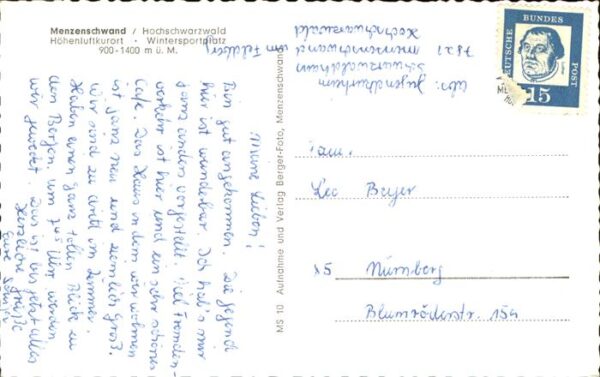 Menzenschwand / Hochschwarzwald
Höhenluftkurort · Wintersportplatz
900-1400 m ü. M.
Abs: Jugendkurheim
Schwarzwaldheim
7821 Menzenschwand im Feldberg
Hochschwarzwald
DEUTSCHE
BUNDES
POST
15
Meine Lieben!
Bin gut angekommen. Die Gegend
hier ist wunderbar. Ich hab's mir
ganz anders vorgestellt. Viel Fremden-
verkehr ist hier und ein sehr schönes
Cafe. Das Haus in dem wir wohnen
ist ganz neu und ziemlich groß.
Wir sind zu dritt im Zimmer.
Haben einen ganz tollen Blick zu
den Bergen. Um 7 45 Uhr werden
wir geweckt. Das ist bis jetzt alles
Herzliche Grüße
Eure
MS 10 Aufnahme und Verlag Berger-Foto, Menzenschwand
Fam.
Leo Beyer
85 Nürnberg
Blumröderstr. 15a